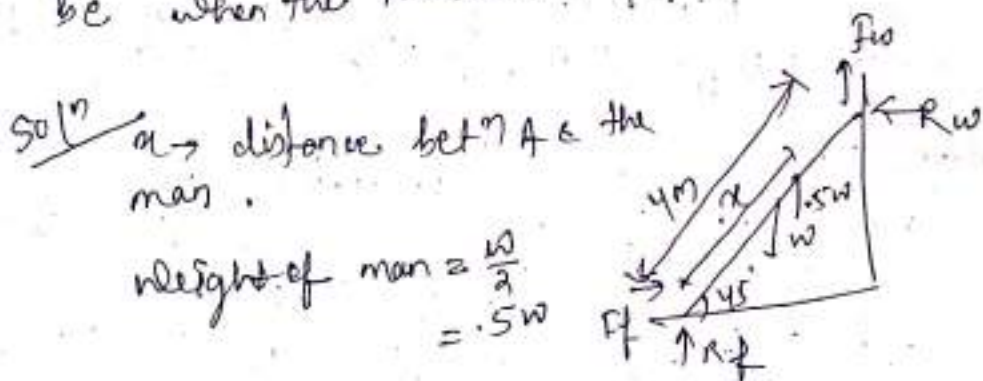 be when the
Solⁿ x → distance betⁿ A & the
man.
Weight of man = w/2
= .5w
Fw
Rw
4m
x
.5w
w
45°
Ff
Rf